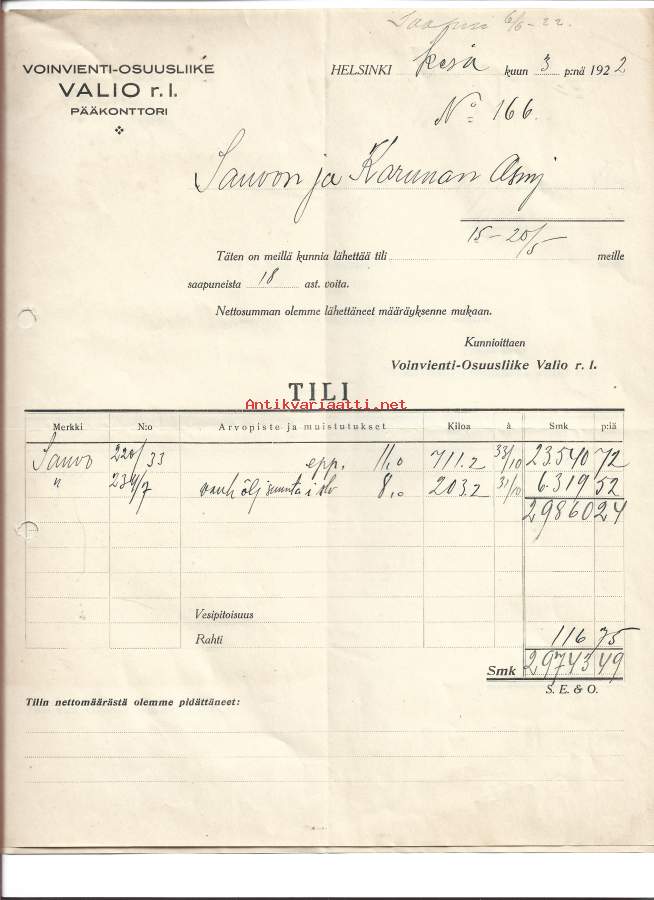 Saapui 6/6-22.
VOINVIENTI-OSUUSLIIKE
VALIO r. l.
PÄÄKONTTORI
HELSINKI kesä kuun 3 p:nä 1922
No 166.
Sauvon ja Karunan Osmj
15-20/5
Täten on meillä kunnia lähettää tili meille
saapuneista 18 ast. voita.
Nettosumman olemme lähettäneet määräyksenne mukaan.
Kunnioittaen
Voinvienti-Osuusliike Valio r. l.
TILI
Antikvariaatti.net
Merkki N:o Arvopiste ja muistutukset Kiloa à Smk p:iä
Sauvo 220/33 epp. 11,0 711.2 33/10 23540 72
" 234/7 vanh öljymäistä 8,0 203.2 31/10 6319 52
29860 24
Vesipitoisuus
Rahti 116 75
Smk 29743 49
S. E. & O.
Tilin nettomäärästä olemme pidättäneet: